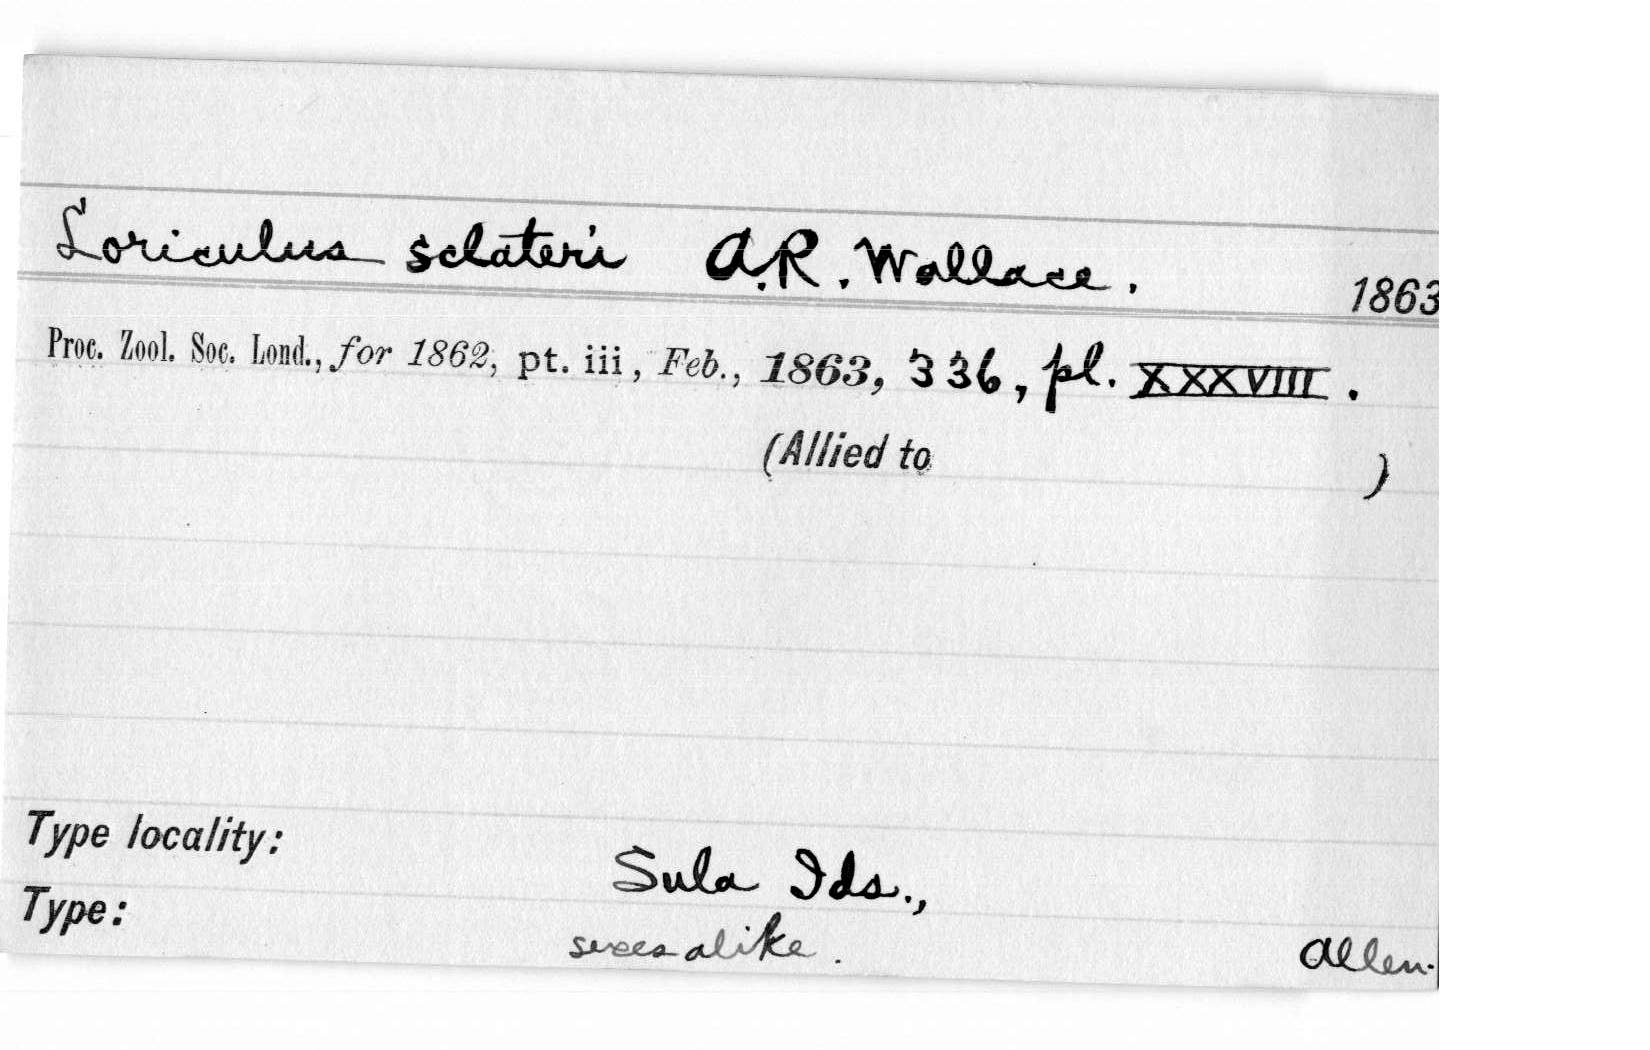 Loriculus sclateri A.R. Wallace. 1863
Proc. Zool. Soc. Lond., for 1862, pt. iii, Feb., 1863, 336, pl. XXXVIII.
(Allied to )
Type locality:
Sula Ids.,
Type:
sexes alike. Allen.